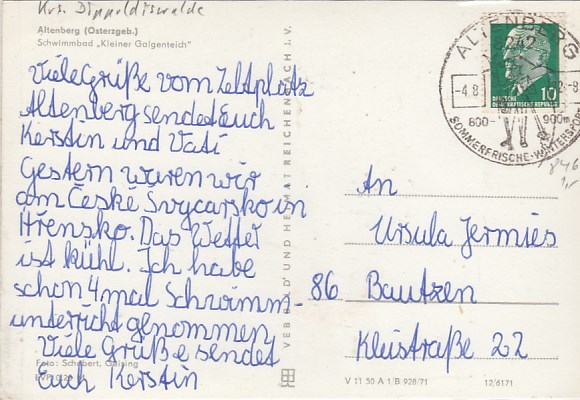 Krs. Dippoldiswalde
Altenberg (Osterzgeb.)
Schwimmbad „Kleiner Galgenteich"
Viele Grüße vom Zeltplatz
Altenberg sendet Euch
Kerstin und Vati
Gestern waren wir
am České Švycarsko in
Hřensko. Das Wetter
ist kühl. Ich habe
schon 4 mal Schwimm-
unterricht genommen
Viele Grüße sendet
Euch Kerstin
Foto: Schubert, Geising
VEB BILD UND HEIMAT REICHENBACH I. V.
ALTENBERG
8242
-4.8
-8
800-
900m
SOMMERFRISCHE-WINTERSPORT
DEUTSCHE
DEMOKRATISCHE REPUBLIK
10
An
Ursula Jermies
86 Bautzen
Kleiststraße 22
V 11 50 A 1/B 928/71
12/6171